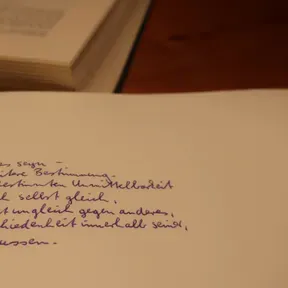 es seyn –
itere Bestimmung.
estimmten Unmittelbarkeit
ch selbst gleich,
t ungleich gegen anderes,
hiedenheit innerhalb seiner,
aussen.